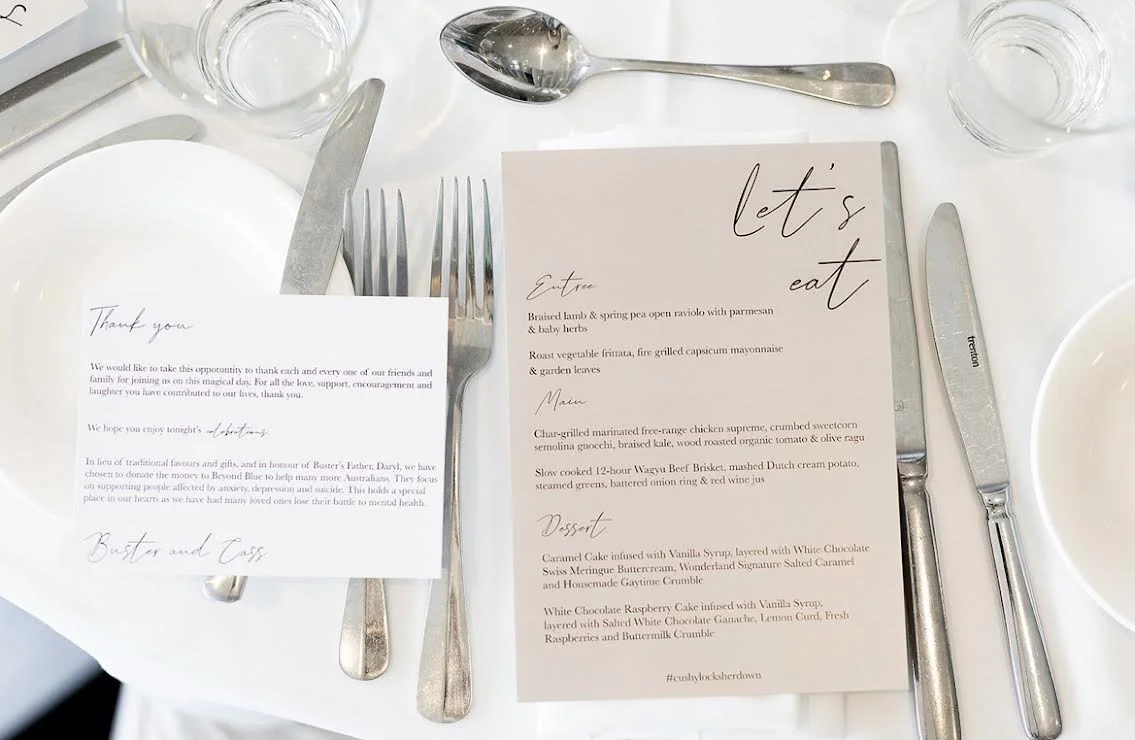 Thank you
We would like to take this opportunity to thank each and every one of our friends and
family for joining us on this magical day. For all the love, support, encouragement and
laughter you have contributed to our lives, thank you.
We hope you enjoy tonight's celebrations
In lieu of traditional favours and gifts, and in honour of Buster's Father, Daryl, we have
chosen to donate the money to Beyond Blue to help many more Australians. They focus
on supporting people affected by anxiety, depression and suicide. This holds a special
place in our hearts as we have had many loved ones lose their battle to mental health.
Buster and Cass
let's
eat
Entree
Braised lamb & spring pea open raviolo with parmesan
& baby herbs
Roast vegetable frittata, fire grilled capsicum mayonnaise
& garden leaves
Main
Char-grilled marinated free-range chicken supreme, crumbed sweetcorn
semolina gnocchi, braised kale, wood roasted organic tomato & olive ragu
Slow cooked 12-hour Wagyu Beef Brisket, mashed Dutch cream potato,
steamed greens, battered onion ring & red wine jus
Dessert
Caramel Cake infused with Vanilla Syrup, layered with White Chocolate
Swiss Meringue Buttercream, Wonderland Signature Salted Caramel
and Housemade Gaytime Crumble
White Chocolate Raspberry Cake infused with Vanilla Syrup,
layered with Salted White Chocolate Ganache, Lemon Curd, Fresh
Raspberries and Buttermilk Crumble
#cushylocksherdown
trenton